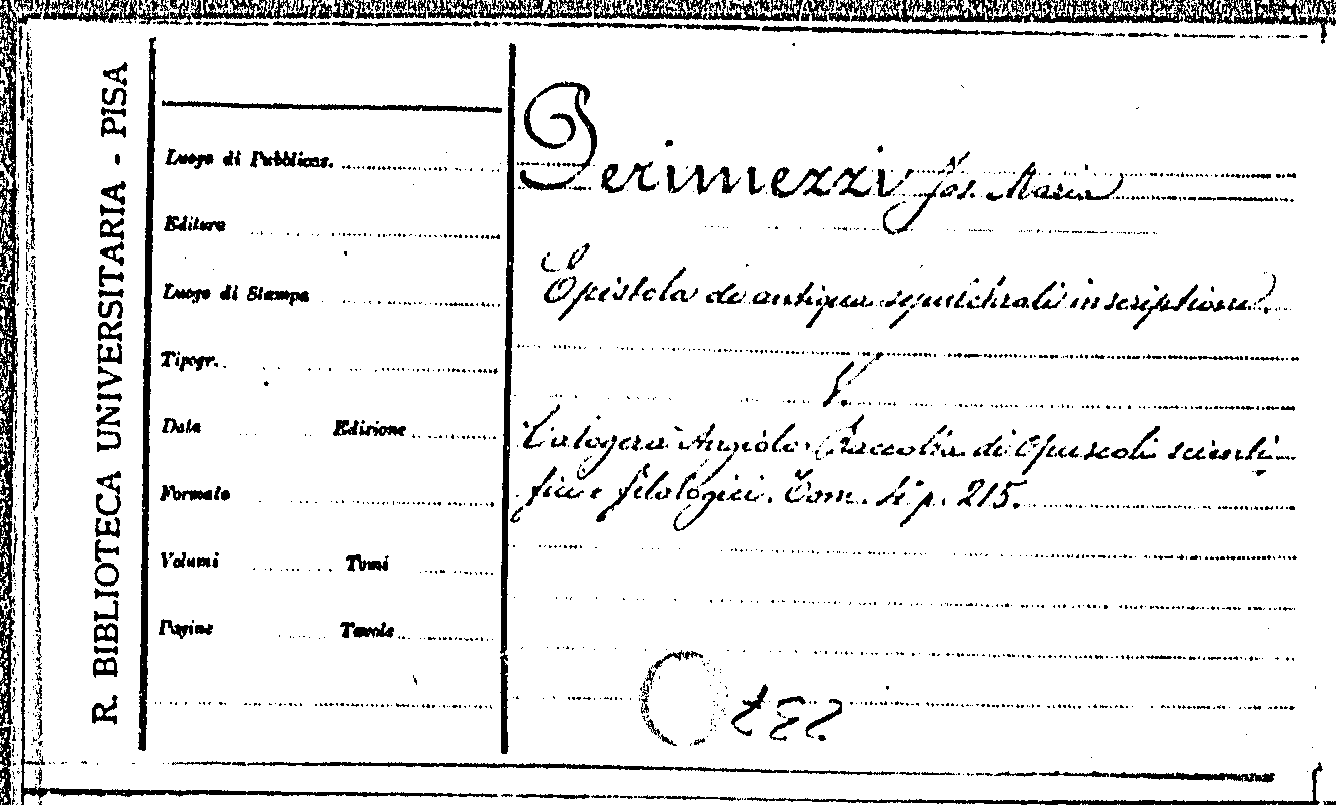 R. BIBLIOTECA UNIVERSITARIA - PISA
Luogo di Pubblicaz.
Editore
Luogo di Stampa
Tipogr.
Data Edizione
Formato
Volumi Tomi
Pagine Tavole
Perimezzi Jos. Maria
Epistola de antiqua sepulchrali inscriptione.
V.
Calogerà Angiolo Raccolta di Opuscoli scienti
fici e filologici. Tom. p. 215.